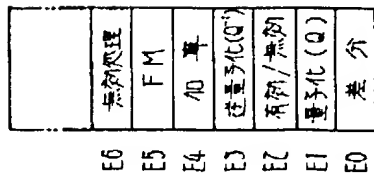 無効処理
FM
加算
逆量子化(Q⁻¹)
有効/無効
量子化(Q)
差分
E6
E5
E4
E3
E2
E1
E0